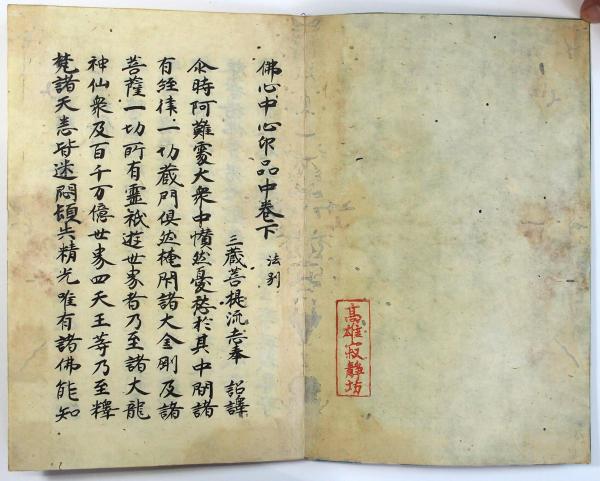 高雄寂靜坊
佛心中心印品中卷下 法別
三藏菩提流志奉 詔譯
尒時阿難處大衆中憒然憂愁於其中間諸
有經律一切藏門俱然掩閇諸大金剛及諸
菩薩一切所有靈祇遊世界者乃至諸大龍
神仙衆及百千万億世界四天王等乃至釋
梵諸天悉皆迷悶頓失精光唯有諸佛能知